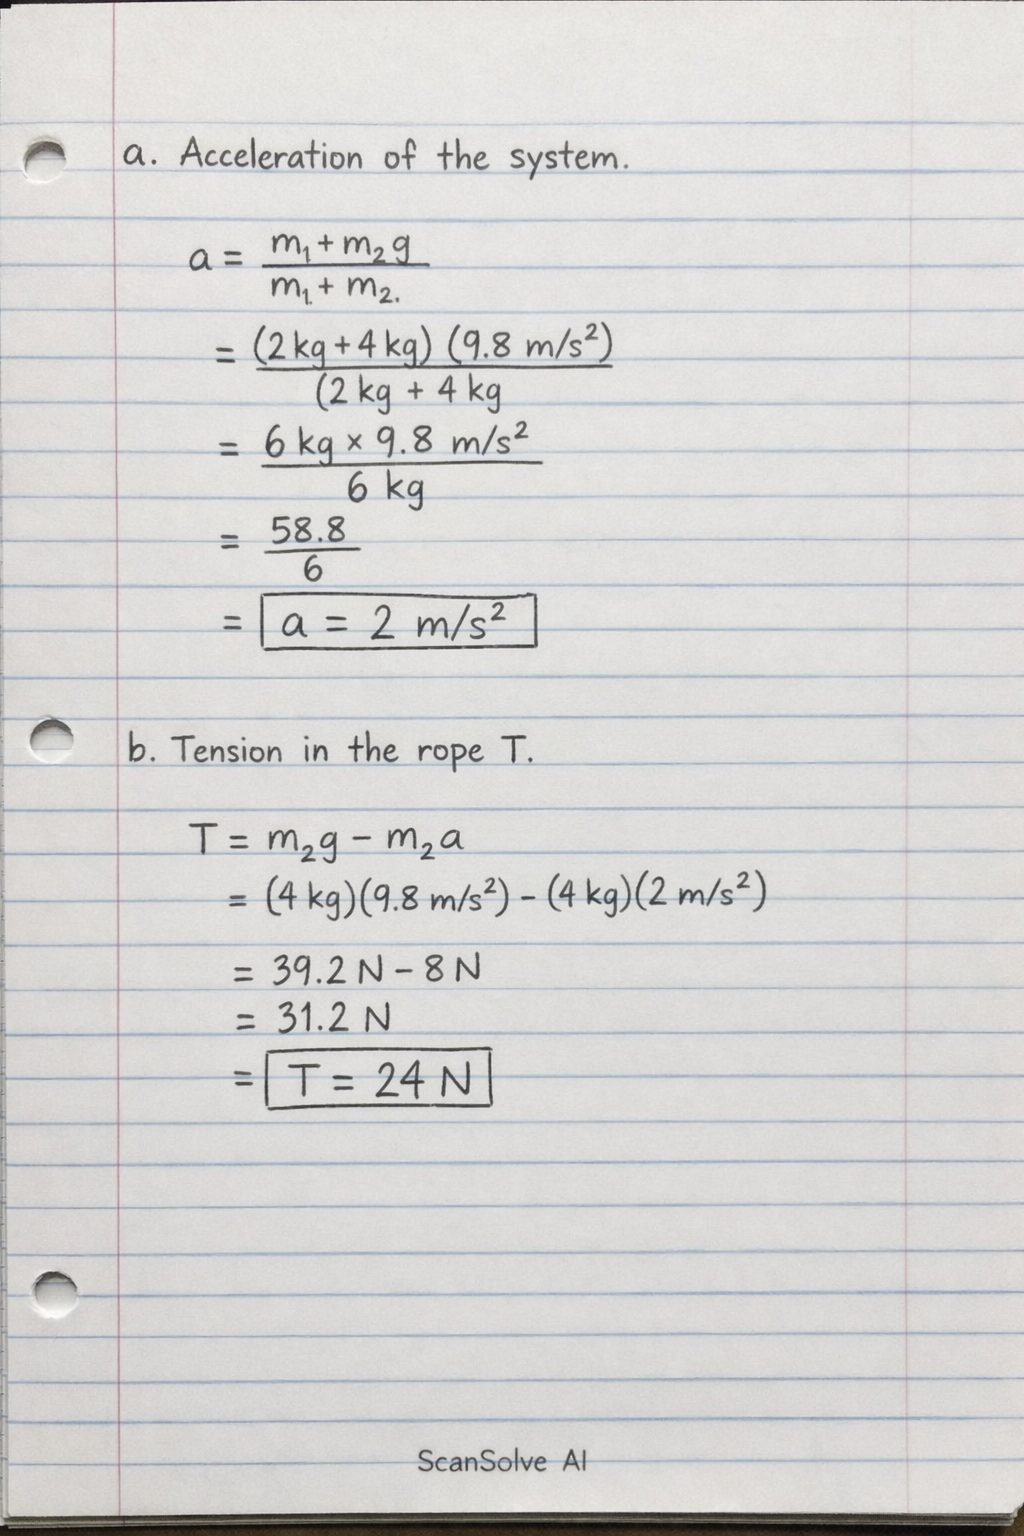 a. Acceleration of the system.
a = m₁ + m₂g
m₁ + m₂.
= (2 kg + 4 kg) (9.8 m/s²)
(2 kg + 4 kg
= 6 kg × 9.8 m/s²
6 kg
= 58.8
6
= a = 2 m/s²
b. Tension in the rope T.
T = m₂g − m₂a
= (4 kg)(9.8 m/s²) − (4 kg)(2 m/s²)
= 39.2 N − 8 N
= 31.2 N
= T = 24 N
ScanSolve AI